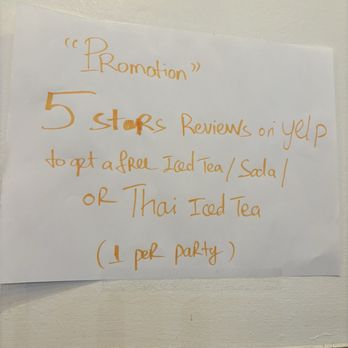 "PRomotion"
5 staRs Reviews on yelp
to get a fRee Iced Tea/Soda/
OR Thai Iced Tea
(1 peR paRty)